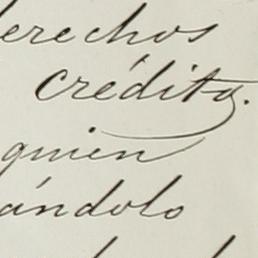 derechos
crédito.
quien
ándolo